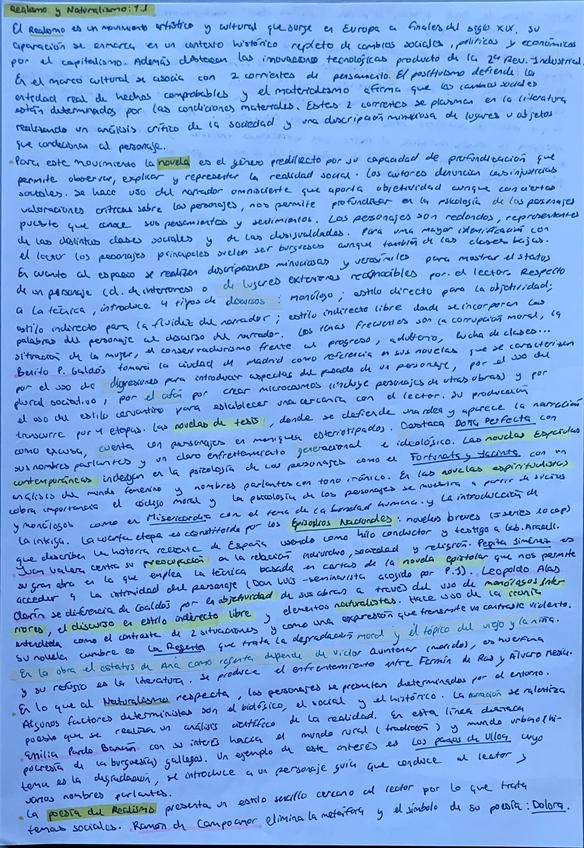 Realismo y Naturalismo: T.1
El Realismo es un movimiento artístico y cultural que surge en Europa a finales del siglo XIX, su
aparición se enmarca en un contexto histórico repleto de cambios sociales, políticos y económicos
por el capitalismo. Además destacan las innovaciones tecnológicas producto de la 2ª Rev. Industrial.
En el marco cultural se asocia con 2 corrientes de pensamiento. El positivismo defiende la
entidad real de hechos comprobables y el materialismo afirma que los cambios sociales
están determinados por las condiciones materiales. Estas 2 corrientes se plasman en la literatura
realizando un análisis crítico de la sociedad y una descripción minuciosa de lugares u objetos
que condicionan al personaje.
• Para este movimiento la novela es el género predilecto por su capacidad de profundización que
permite observar, explicar y representar la realidad social. Los autores denuncian las injusticias
sociales. Se hace uso del narrador omnisciente que aporta objetividad aunque con ciertas
valoraciones críticas sobre los personajes, nos permite profundizar en la psicología de los personajes
puesto que conoce sus pensamientos y sentimientos. Los personajes son redondos, representantes
de las distintas clases sociales y de las desigualdades. Para una mayor identificación con
el lector los personajes principales suelen ser burgueses aunque también de las clases bajas.
En cuanto al espacio se realizan descripciones minuciosas y verosímiles para mostrar el status
de un personaje (d. de interiores) o de lugares exteriores reconocibles por el lector. Respecto
a la técnica, introduce 4 tipos de discursos: monólogo; estilo directo para la objetividad;
estilo indirecto para la fluidez del narrador; estilo indirecto libre donde se incorporan las
palabras del personaje al discurso del narrador. Los temas frecuentes son la corrupción moral, la
situación de la mujer, el conservadurismo frente al progreso, adulterio, lucha de clases...
Benito P. Galdós tomará la ciudad de Madrid como referencia en sus novelas que se caracterizan
por el uso de digresiones para introducir aspectos del pasado de un personaje, por el uso del
plural sociativo; por el afán por crear microcosmos (incluye personajes de otras obras) y por
el uso del estilo cervantino para establecer una cercanía con el lector. Su producción
transcurre por 4 etapas. Las novelas de tesis, donde se defiende una idea y aparece la narración
como excusa, cuenta con personajes en maniquea esteriotipados. Destaca Doña Perfecta con
sus nombres parlantes y un claro enfrentamiento generacional e ideológico. Las novelas Españolas
contemporáneas indagan en la psicología de los personajes como el Fortunata y Jacinta con un
análisis del mundo femenino y nombres parlantes con tono irónico. En las novelas espiritualistas
cobra importancia el código moral y la psicología de los personajes se muestra a partir de sueños
y monólogos como en Misericordia con el tema de la bondad humana y la introducción de
la intriga. La cuarta etapa es constituida por los Episodios Nacionales: novelas breves (5 series 10 cap)
que describen la historia reciente de España usando como hilo conductor y testigo a Gab. Araceli.
Juan Valera centra su preocupación en la relación individuo, sociedad y religión. Pepita Jiménez es
su gran obra en la que emplea la técnica basada en cartas de la novela epistolar que nos permite
acceder a la intimidad del personaje (Don Luis - seminarista acogido por P.J). Leopoldo Alas
Clarín se diferencia de Galdós por la objetividad de sus obras a través del uso de monólogos inter
riores, el discurso en estilo indirecto libre y elementos naturalistas. Hace uso de la ironía
entendida como el contraste de 2 situaciones y como una expresión que transmite un contraste violento.
Su novela cumbre es La Regenta que trata la degradación moral y el tópico del viejo y la niña.
En la obra el estatus de Ana como regenta depende de Víctor Quintanar (marido), es huérfana
y su refugio es la literatura. Se produce el enfrentamiento entre Fermín de Pas y Álvaro Mesía.
• En lo que al Naturalismo respecta, los personajes se presentan determinados por el entorno.
Algunos factores deterministas son el biológico, el social y el histórico. La narración se ralentiza
puesto que se realiza un análisis científico de la realidad. En esta línea destaca
Emilia Pardo Bazán con su interés hacia el mundo rural (tradición) y mundo urbano (hi-
pocresía de la burguesía) gallegos. Un ejemplo de este interés es Los pazos de Ulloa cuyo
tema es la degradación, se introduce a un personaje guía que conduce al lector y
varios nombres parlantes.
• La poesía del Realismo presenta un estilo sencillo cercano al lector por lo que trata
temas sociales. Ramón de Campoamor elimina la metáfora y el símbolo de su poesía: Dolora.